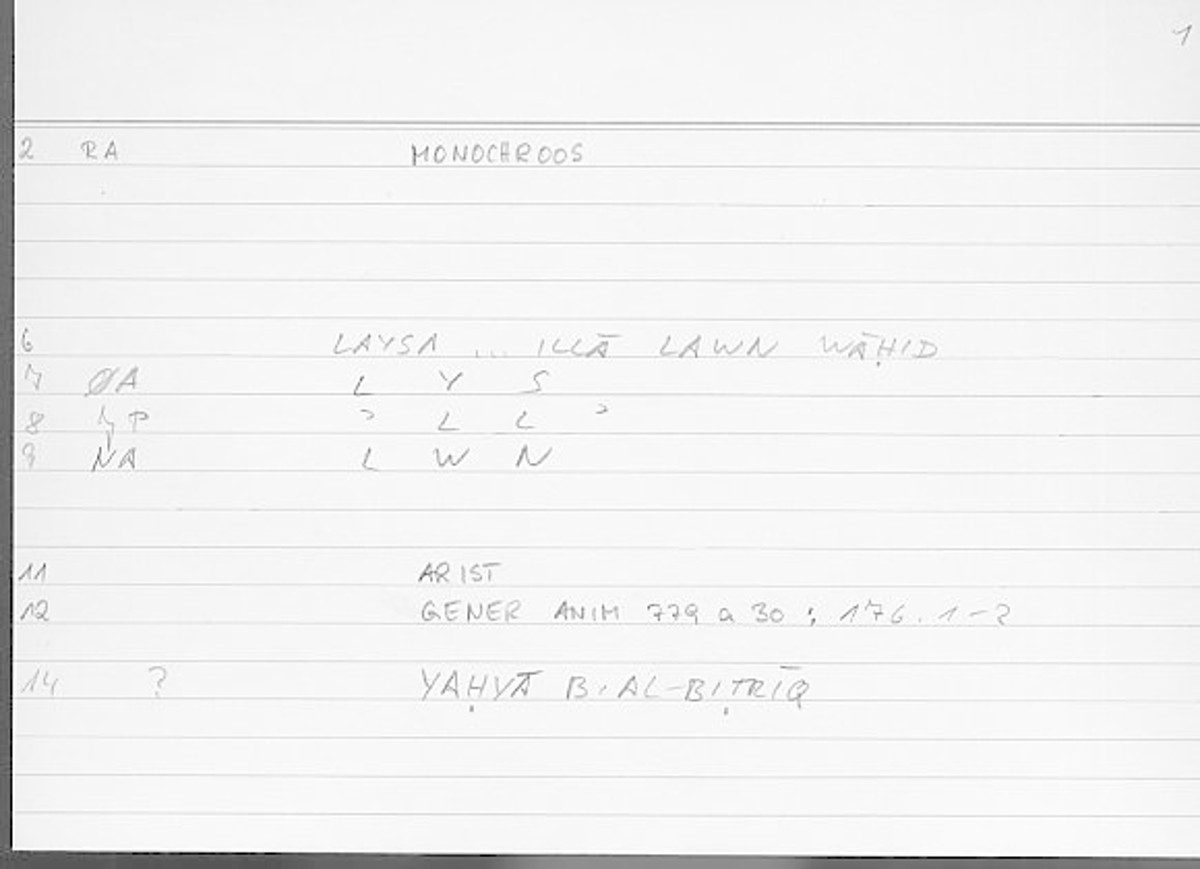 1
2 RA MONOCHROOS
6 LAYSA ... ILLĀ LAWN WĀḤID
7 ØA L Y S
8 P ʾ L L ʾ
9 NA L W N
11 ARIST
12 GENER ANIM 779 a 30 : 176.1-2
14 ? YAḤYĀ B. AL-BIṬRĪQ